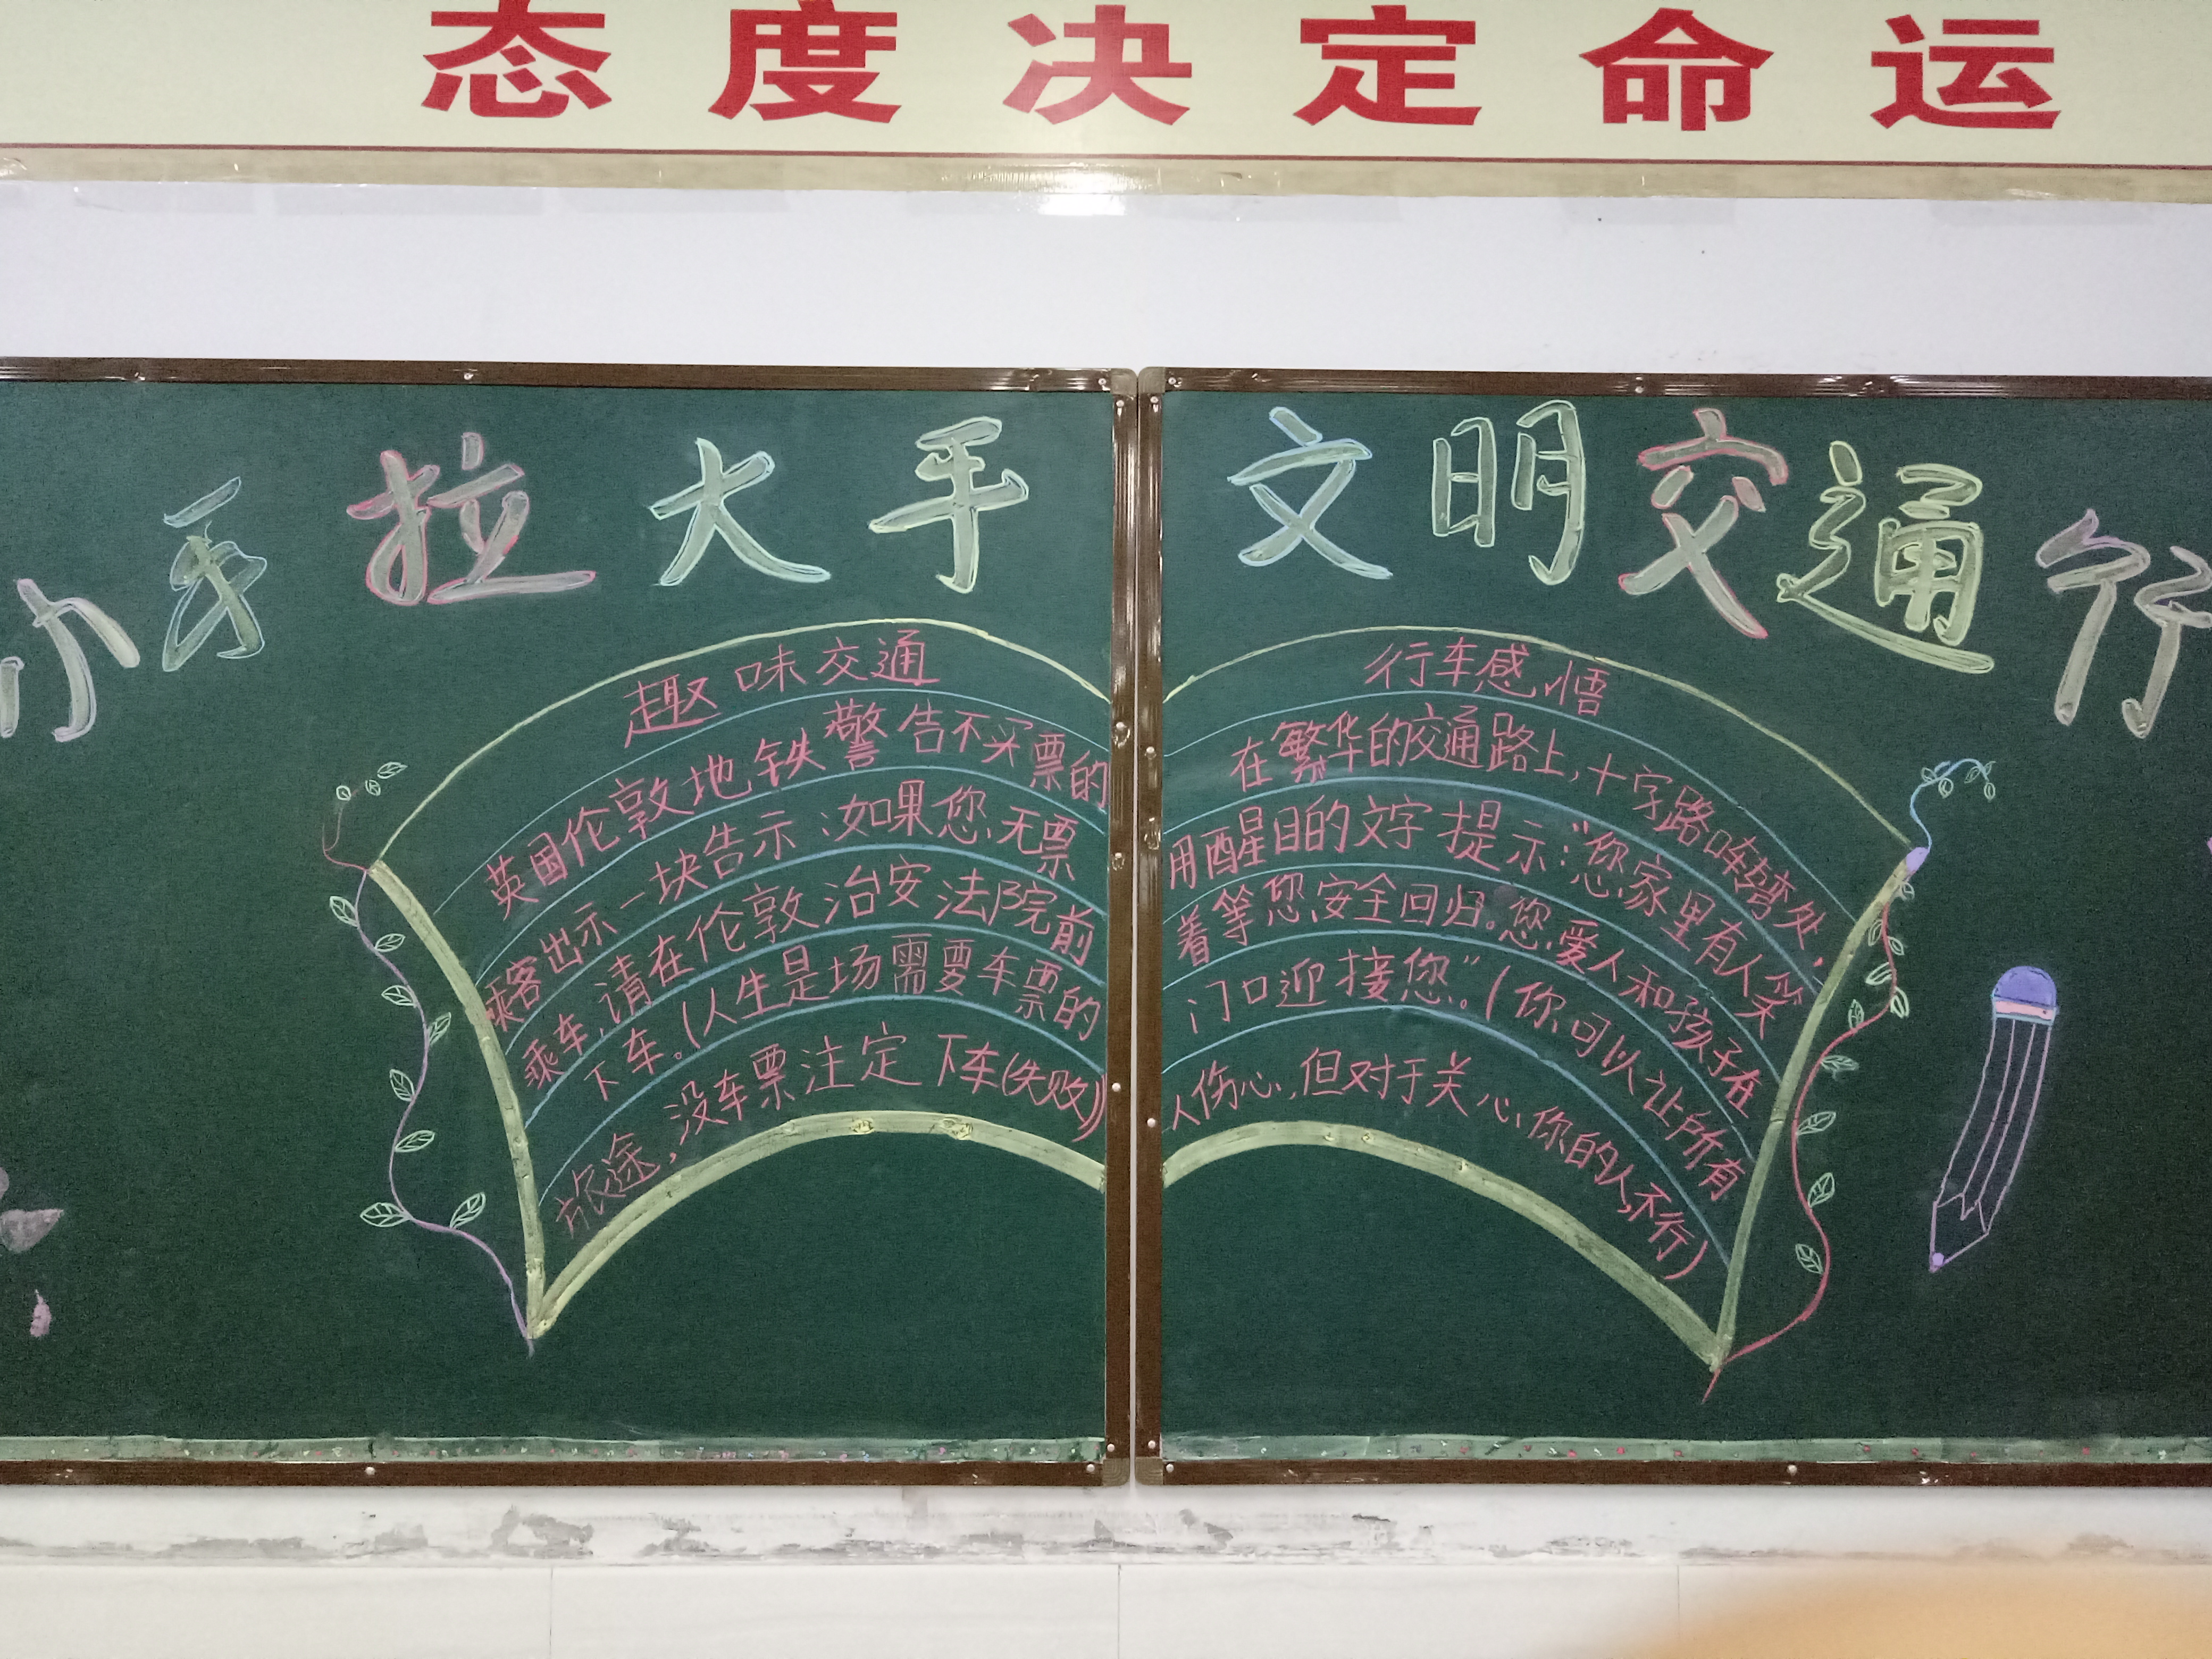 态度决定命运
小手拉大手 文明交通行
趣味交通
英国伦敦地铁警告不买票的
乘客出示一块告示:如果您无票
乘车,请在伦敦治安法院前
下车。(人生是场需要车票的
旅途,没车票注定下车(失败))
行车感悟
在繁华的交通路上,十字路口转弯处,
用醒目的文字提示:“您家里有人笑
着等您安全回归。您爱人和孩子在
门口迎接您”。(你可以让所有
人伤心,但对于关心你的人,不行)